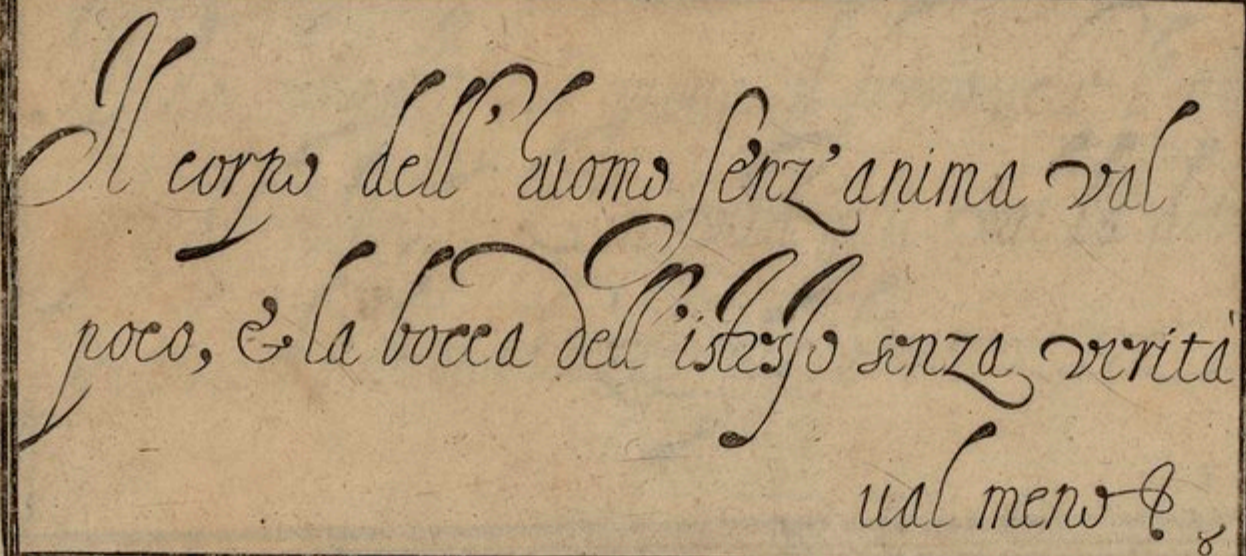 Il corpo dell'huomo senz'anima val
poco, & la bocca dell'istesso senza verità
ual meno &